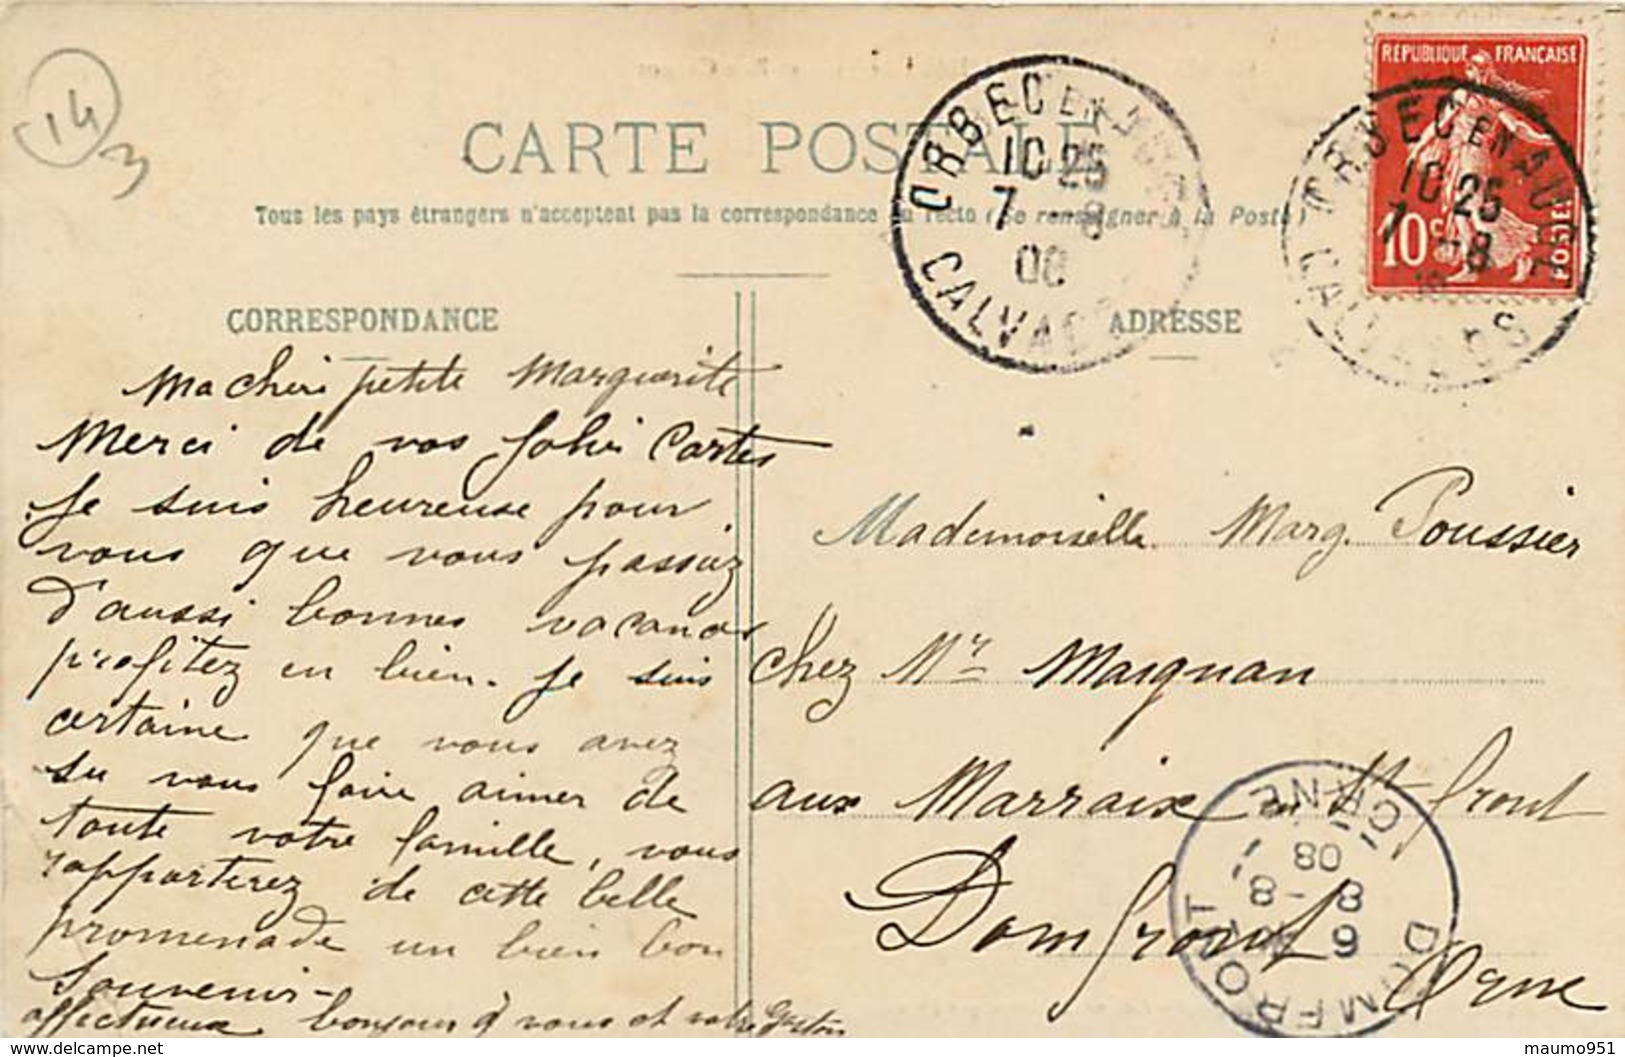 14
3
CARTE POSTALE
Tous les pays étrangers n'acceptent pas la correspondance au recto (Se renseigner à la Poste)
ORBEC EN AUGE
10 25
7 8
08
CALVADOS
REPUBLIQUE FRANÇAISE
10c POSTES
ORBEC EN AUGE
10 25
7 - 8
CALVADOS
CORRESPONDANCE
ADRESSE
Ma chéri petite Marguerite
Merci de vos jolies Cartes
Je suis heureuse pour
vous que vous passiez
d'aussi bonnes vacances
profitez en bien. Je suis
certaine que vous avez
su vous faire aimer de
toute votre famille, vous
rapporterez de cette belle
promenade un bien bon
Souvenir -
affectueux bonjour à vous et votre
Mademoiselle Marg. Poussier
chez Mr Maignan
aux Marraix en St front
Domfront
Orne
DOMFRONT
6
8 - 8
08
ORNE
maumo951